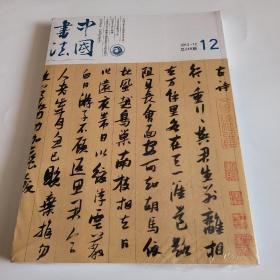 中國
書法
12
古詩
行〻重行〻與君生別離相
去万餘里各在天一涯道路
阻且長會面安可知胡馬依
北風越鳥巢南枝相去日
已遠衣帶日以緩浮雲蔽
白日游子不顧返思君令
人老歲月忽已晚棄捐勿